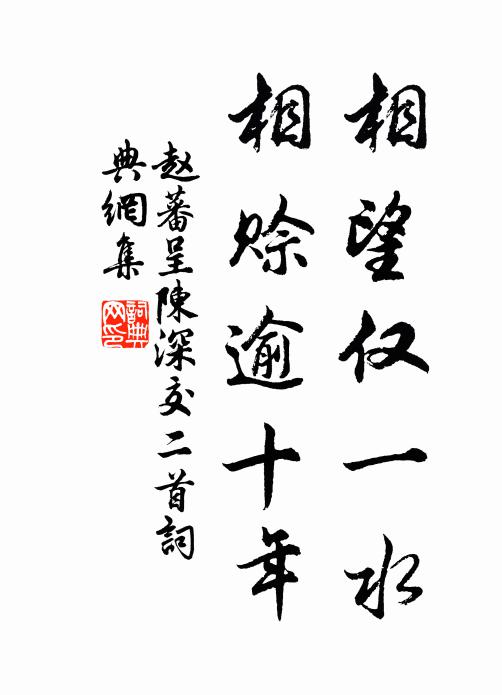 相望仅一水
相赊逾十年
赵蕃呈陳深交二首詞
典網集
詞典
网印